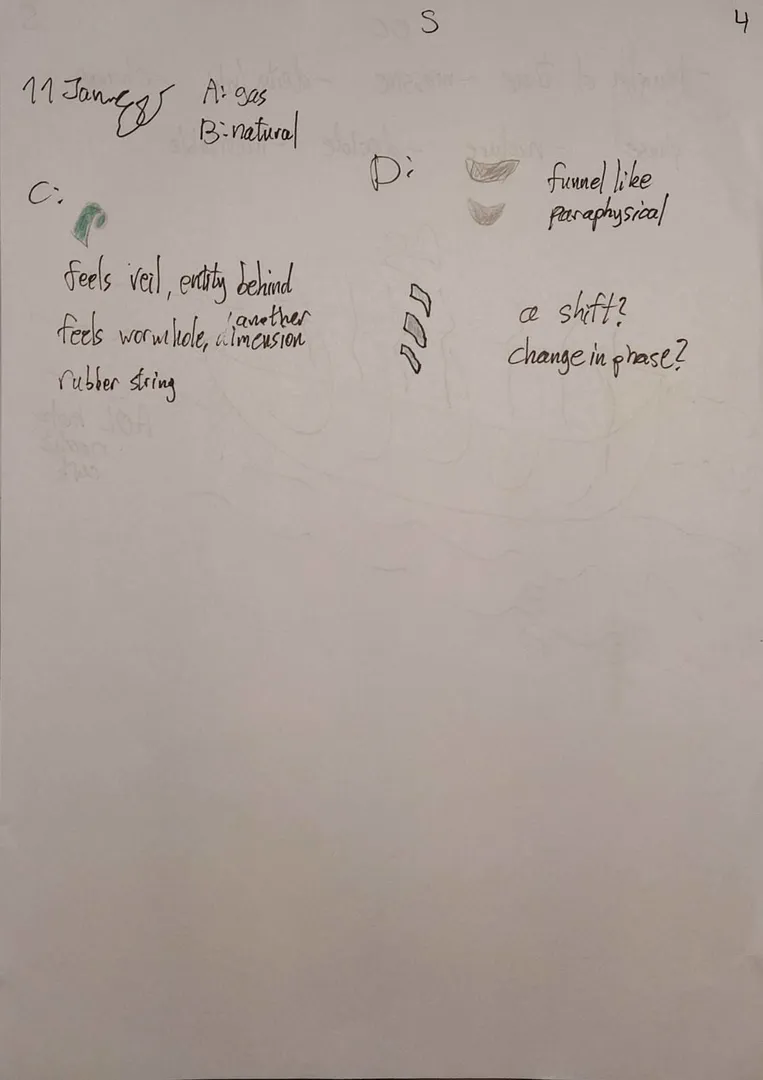 S
4
11 Jan
A: gas
B: natural
C:
feels veil, entity behind
feels wormhole, another dimension
rubber string
D:
funnel like
paraphysical
a shift?
change in phase?